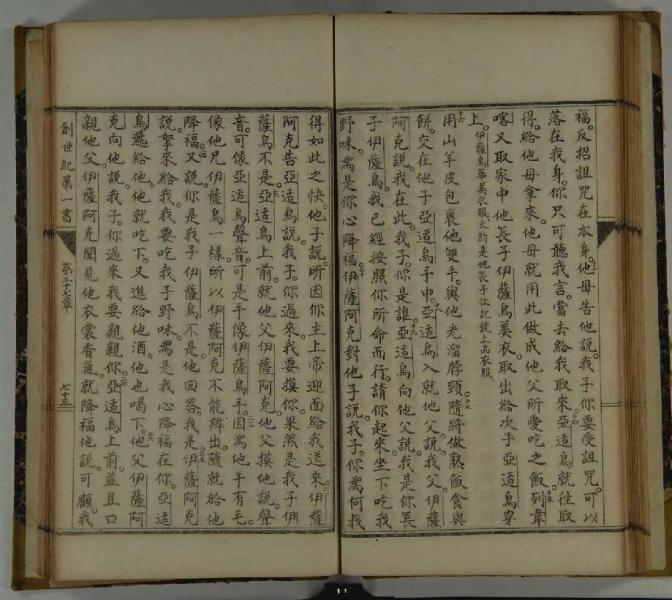 福反招詛咒在本身他母告他說我子你要受詛咒可以
落在我身你只可聽我言當去給我取來亞适烏就往取
得給他母拿來他母就用此做成他父所愛吃之飯列韋
喀又取家中他長子伊薩烏美衣取出給次子亞适烏穿
上伊薩烏華美衣服大約是他長子位記號上品衣服
用山羊皮包裹他雙手與他光溜脖頸隨將做熟飯食與
餅交在他子亞适烏手中亞适烏入就他父說我父伊薩
阿克說我在此我子你是誰亞适烏向他父說我是你長
子伊薩烏我已經按照你所命而行請你起來坐下吃我
野味為是你心降福伊薩阿克對他子說我子你為何找
得如此之快他子說所因你主上帝迎面給我送來伊薩
阿克告亞适烏說我子你過來我要摸你果然是我子伊
薩烏不是亞适烏上前就他父伊薩阿克他父摸他說聲
音可像亞适烏聲音可是手像伊薩烏手因為他手有毛
像他兄伊薩烏一樣所以伊薩阿克不能辨出隨就給他
降福又說你是我子伊薩烏不是他回答我是伊薩阿克
說拏來給我我要吃我子野味為是我心降福在你亞适
烏遞給他他就吃下又進給他酒他也喝下他父伊薩阿
克向他說我子你過來我要親親你亞适烏上前並且口
親他父伊薩阿克聞見他衣裳香氣就降福他說可願我
創世紀第一書
第二十七章
七十三